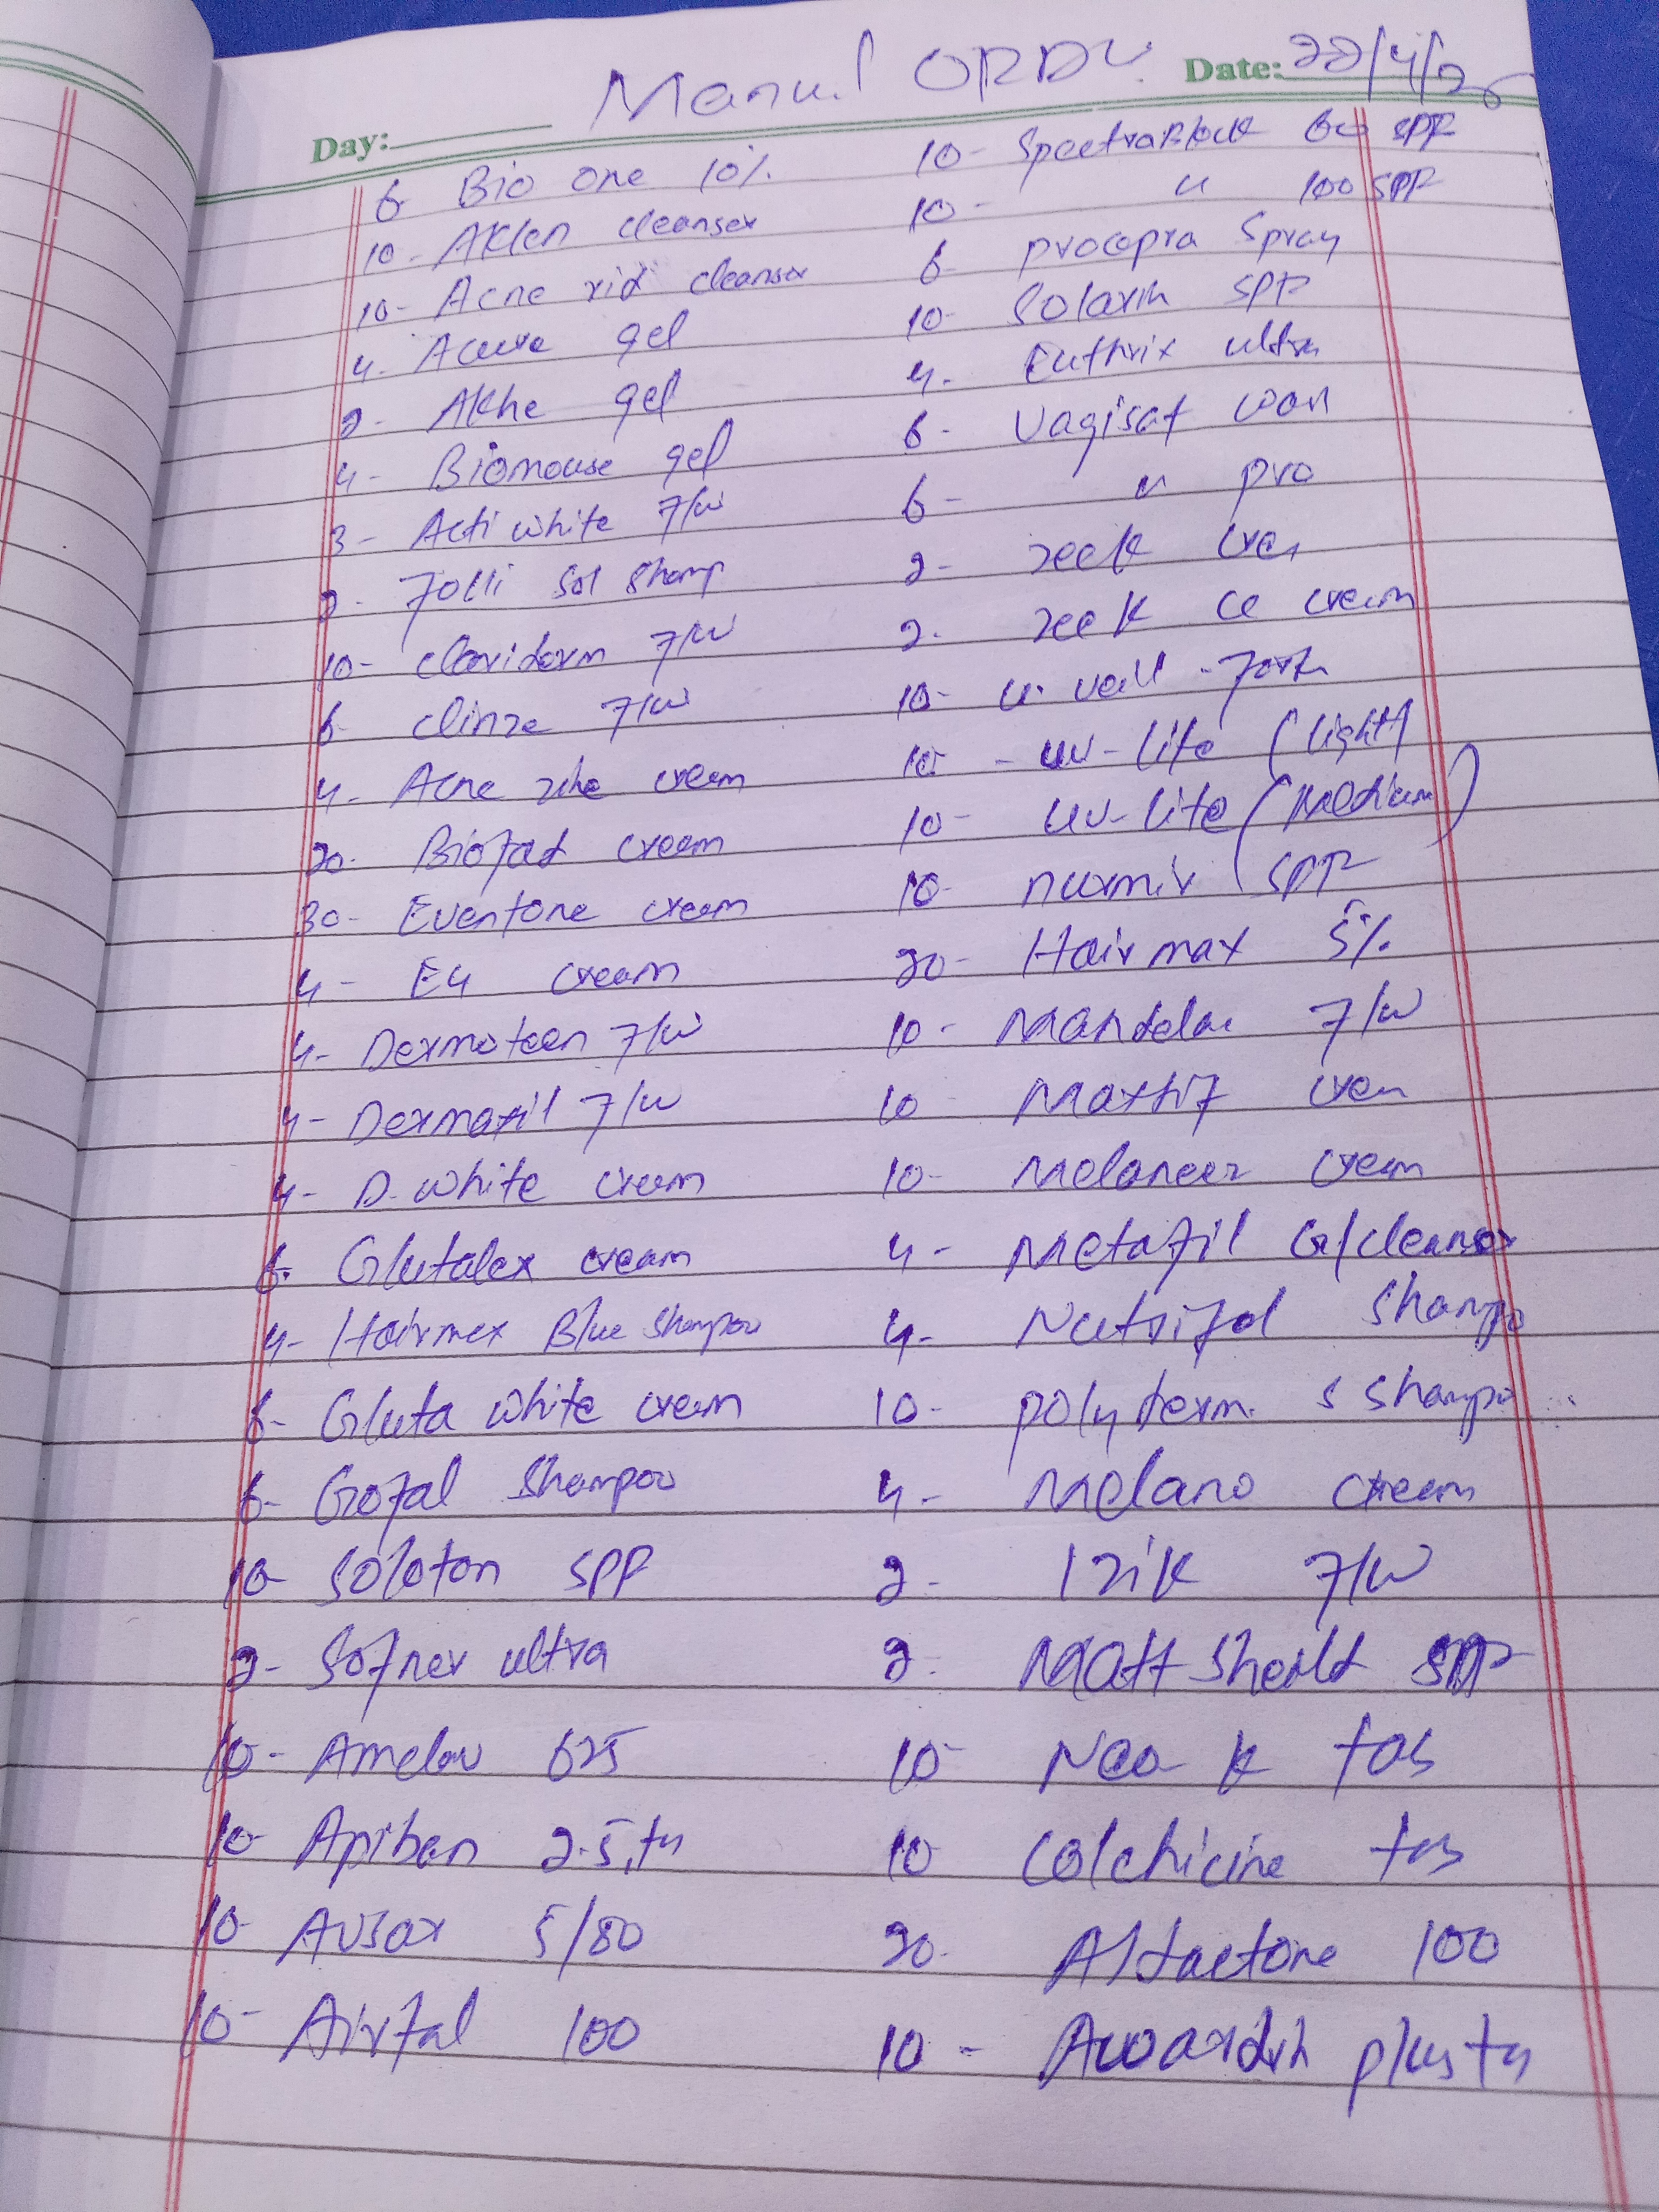 Manual ORDR
Day:
Date: 22/4/26
6- Bio One 10%
10- Aklen cleanser
10- Acne rid cleanser
4- Acure gel
2- Akne gel
4- Biomouse gel
3- Acti white f/w
2- Folli Sol Shamp
10- claviderm f/w
6- clinze f/w
4- Acne zine cream
20- Biofad cream
30- Eventone cream
4- E4 cream
4- Dermoteen f/w
4- Dermaxil f/w
4- D. white cream
6- Glutalex cream
4- Hairmex Blue Shampoo
6- Gluta white cream
6- Gofal Shampoo
10- Soloton SPF
2- Sofner ultra
10- Amelav 625
10- Apiban 2.5,
10- Avsar 5/80
10- Airtal 100
10- SpectraBlock 60 SPF
10- " 100 SPF
6- procapra Spray
10- Solarin SPF
4- Euthrix ultra
6- Vagisat
6- " pro
2- zeek
2- zeek Ce cream
10- U. veil - fort
10- uv-lite (light)
10- uv-lite (Medium)
10- SPF
20- Hairmax 5%
10- Mandelac f/w
10-
10- Melaneez cream
4- Metafil G/cleanser
4- Nutrifol Shampo
10- polyterm. S Shampo
4- Melano cream
2- Izik f/w
2- Matt Sheild SPF
10- Neo k tas
10- Colchicine tas
20- Aldactone 100
10-